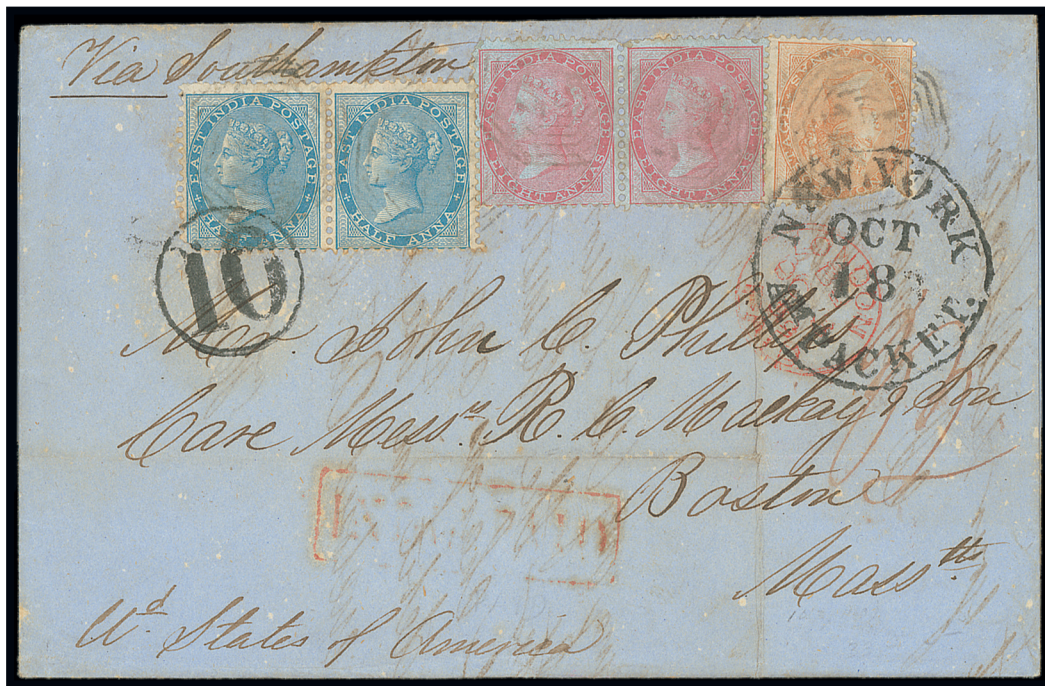 Via Southampton
EAST INDIA POSTAGE
HALF ANNA
EAST INDIA POSTAGE
HALF ANNA
EAST INDIA POSTAGE
EIGHT ANNAS
EAST INDIA POSTAGE
EIGHT ANNAS
NEW YORK
OCT
18
AM. PACKET.
10
LONDON
Mr. John C. Phillips
Care Mess.rs R. C. Mackay & Son
Boston
Mass.tts
U.d States of America